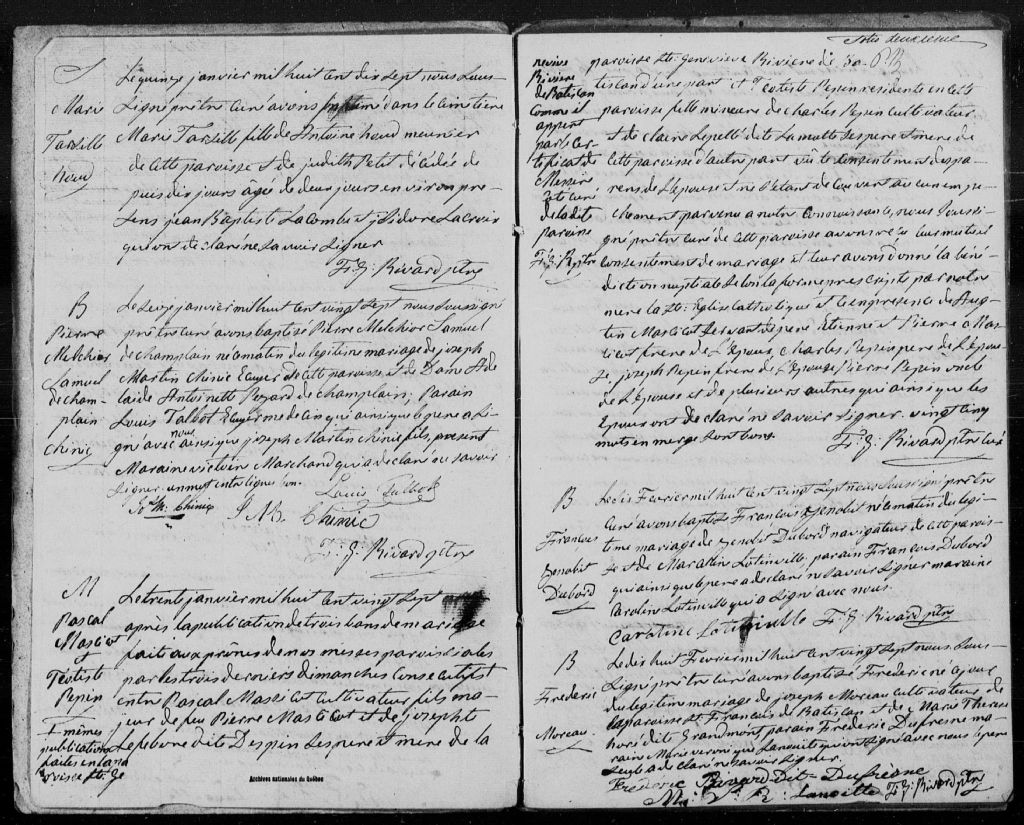 S
Marie
Tarsille
houd
Le quinze janvier mil huit cent dix sept nous sous
signé prêtre curé avons inhumé dans le cimetiere
Marie Tarsille fille de Antoine houd meunier
de cette paroisse et de judith Petit décédée de
puis dix jours agée de deux jours environ pre
sens jean Baptiste Lacombe et jsidore Lacroix
qui ont declaré ne savoir signer
Fr: G: Rivard ptre
B
Pierre
Melchior
Samuel
de cham-
plain
Chinic
Le seize janvier mil huit cent vingt sept nous soussigné
prêtre curé avons baptisé Pierre Melchior Samuel
de champlain né ce matin du legitime mariage de joseph
Martin Chinic Ecuyer de cette paroisse et de Dame Ade
laide Antoinette Pezard de champlain; Parain
Louis Talbot Ecuyer qui ainsi que le pere a si-
gné avec nous ainsi que joseph Martin chinic fils, present
Maraine Marchand qui a declaré ne savoir
signer. un mot entre ligne bon.
Louis Talbot
Jos M: Chinic
J. M. Chinic
Fr: G: Rivard ptre
M
Pascal
Massicot
Téotiste
Pepin
mêmes
publications
faites en la pa
roisse Ste. Ge
Le trente janvier mil huit cent vingt sept
après la publication de trois bans de mariage
faite aux prônes de nos messes paroissiales
par les trois derniers dimanches consecutifs
entre Pascal Massicot cultivateur fils ma-
jeur de feu Pierre Massicot et de josephte
Lefebvre dite Despin ses pere et mere de la
Archives nationales du Québec
folio deuxieme
nevive
Riviere
de Batiscan
comme il
appert
par le Cer-
tificat de
Messire
curé
de la dite
paroisse
Fr: G: R ptre
paroisse Ste: Geneviève Riviere de Ba-
tiscand une part et Téotiste Pepin residente en cette
paroisse fille mineure de Charles Pepin cultivateur
et de claire Lepellé dit Lamothe ses pere et mere de
cette paroisse d'autre part vû le consentement des pa-
rens de l'épouse et ne s'étant decouvert aucun empe-
chement parvenu a notre connoissance, nous soussi-
gné prêtre curé de cette paroisse avons reçu leur mutuel
consentement de mariage et leur avons donné la béné-
diction nuptiale selon la forme prescrite par notre
mere la Ste: Eglise Catholique et ce en presence de Augus
tin Massicot servant de pere, Etienne et Pierre Mas-
sicot frere de l'épour, Charles Pepin pere de l'épou-
se, joseph Pepin frere de l'épouse, Pierre Pepin oncle
de l'épouse et de plusieurs autres qui ainsi que les
époux ont declaré ne savoir signer. vingt cinq
mots en merge sont bons.
Fr: G: Rivard ptre curé
B
François
Zenobit
Dubord
Le dix Fevrier mil huit cent vingt sept nous soussigné prêtre
curé avons baptisé François Zenobit né ce matin du legi-
time mariage de Zenobit Dubord navigateur de cette parois-
se et de Lotinville, parain François Dubord
qui ainsi que le pere a declaré ne savoir signer maraine
Caroline Lotinville qui a signé avec nous.
Caroline Lotinville Fr: G: Rivard ptre
B
Frederic
Moreau
Le dix huit Fevrier mil huit cent vingt sept nous sous-
signé prêtre curé avons baptisé Frederic né ce jour
du legitime mariage de joseph Moreau cultivateur de
la paroisse St. François de Batiscan et de Marie Therese
horé dite Grandmont parain Frederic Dufresne ma-
raine Marie qui ont signé avec nous le pere
seul a declaré ne savoir signer.
Frederic Rivard Dit Dufresne
Fr: G: Rivard ptre